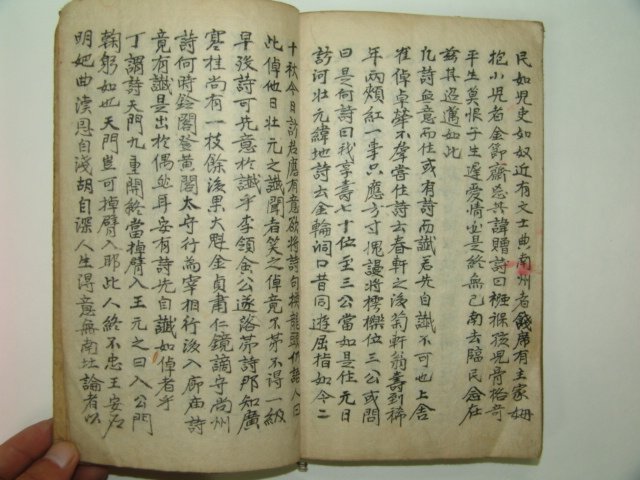 民如児史如奴近有文士典南州者餞席有主家姆
抱小児者金節齋忩其諱贈詩曰襁褓孩児骨格奇
平生莫恨子生遲愛情寔是終無已南去臨民念在
玆其迃濶如此
凡詩無意而仕或有詩而讖若先自讖不可也上舍
崔倬卓犖不羣嘗仕詩云春軒之後菊軒翁壽到稀
年兩頰紅一季只應方寸愧謾將樗櫟位三公或問
曰是何詩曰我享壽七十位至三公當如是仕元日
訪河壯元緯地詩云金輪洞口昔同遊屈指如今二
十秋今日訪君應有意欲將詩句換龍頭仍語人曰
此倬他日壯元之讖聞者笑之倬竟不第不得一級
早後詩可先意於讖乎李領金公遂落第詩那知廣
寒桂尚有一枝餘後果大魁金貞肅仁鏡謫守尚州
詩何時鈴閣登黃閣太守行為宰相行後入廊庙詩
竟有讖是出於偶然耳安有詩先自讖如倬者乎
丁謂詩天門九重開終當掉臂入王元之曰入公門
鞠躬如也天門豈可掉臂入耶此人終不忠王安石
明妃曲漢恩自淺胡自深人生得意無南北論者以